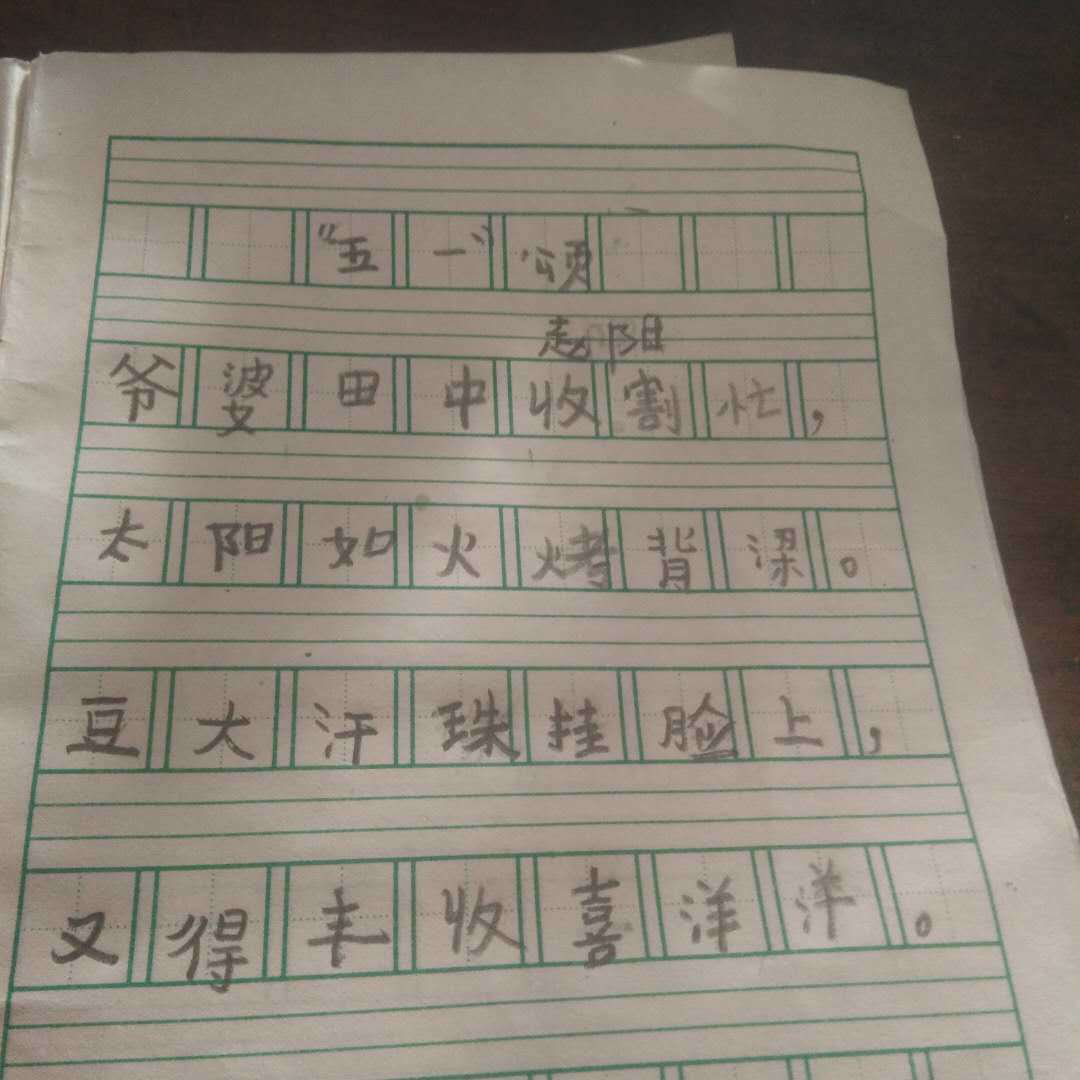 “五一”颂
赵阳
爷婆田中收割忙，
太阳如火烤背梁。
豆大汗珠挂脸上，
又得丰收喜洋洋。